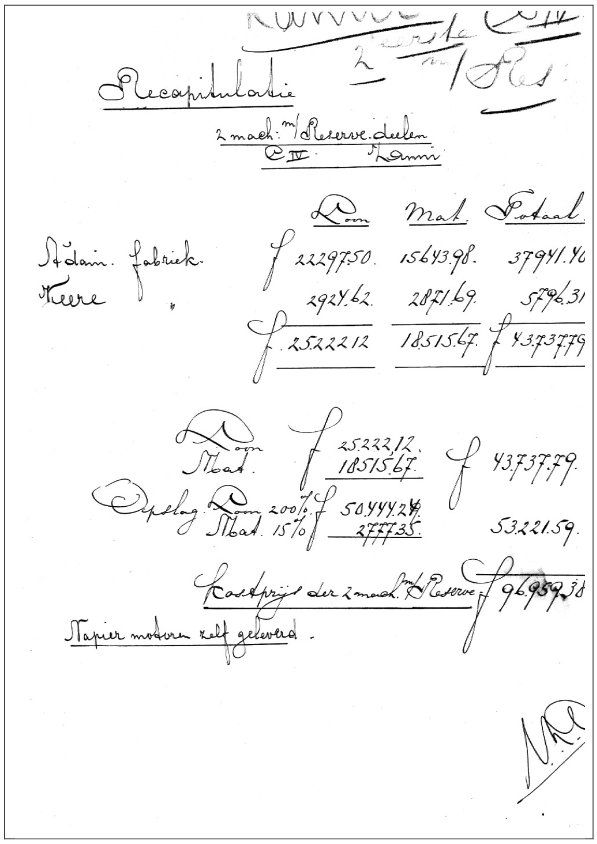 C IV
2 eerste
m/ Res:
Recapitulatie
2 mach: m/ Reserve deelen
C IV.
Loon Mat. Totaal
A'dam. fabriek. f 22297.50. 15643.98. 37941.48
Veere " 2924.62. 2871.69. 5796.31
f 25.222.12 18.515.67. f 43.737.79
Loon f 25.222.12.
Mat. 18.515.67. f 43.737.79.
Opslag Loon 200% f 50.444.24.
Mat. 15% 2777.35. 53.221.59.
Kostprijs der 2 mach. m/ Reserve f 96.959.38
Napier motoren zelf geleverd.